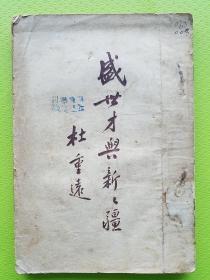 盛世才與新〻疆
杜重遠